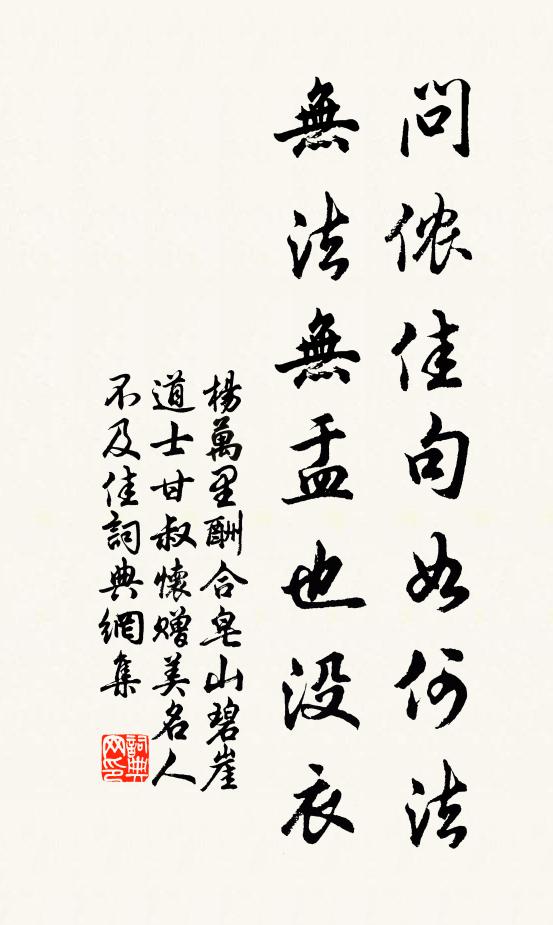 問侬佳句如何法
無法無盂也没衣
楊萬里酬合皂山碧崖
道士甘叔懷贈美名人
不及佳詞典網集
詞典
网印